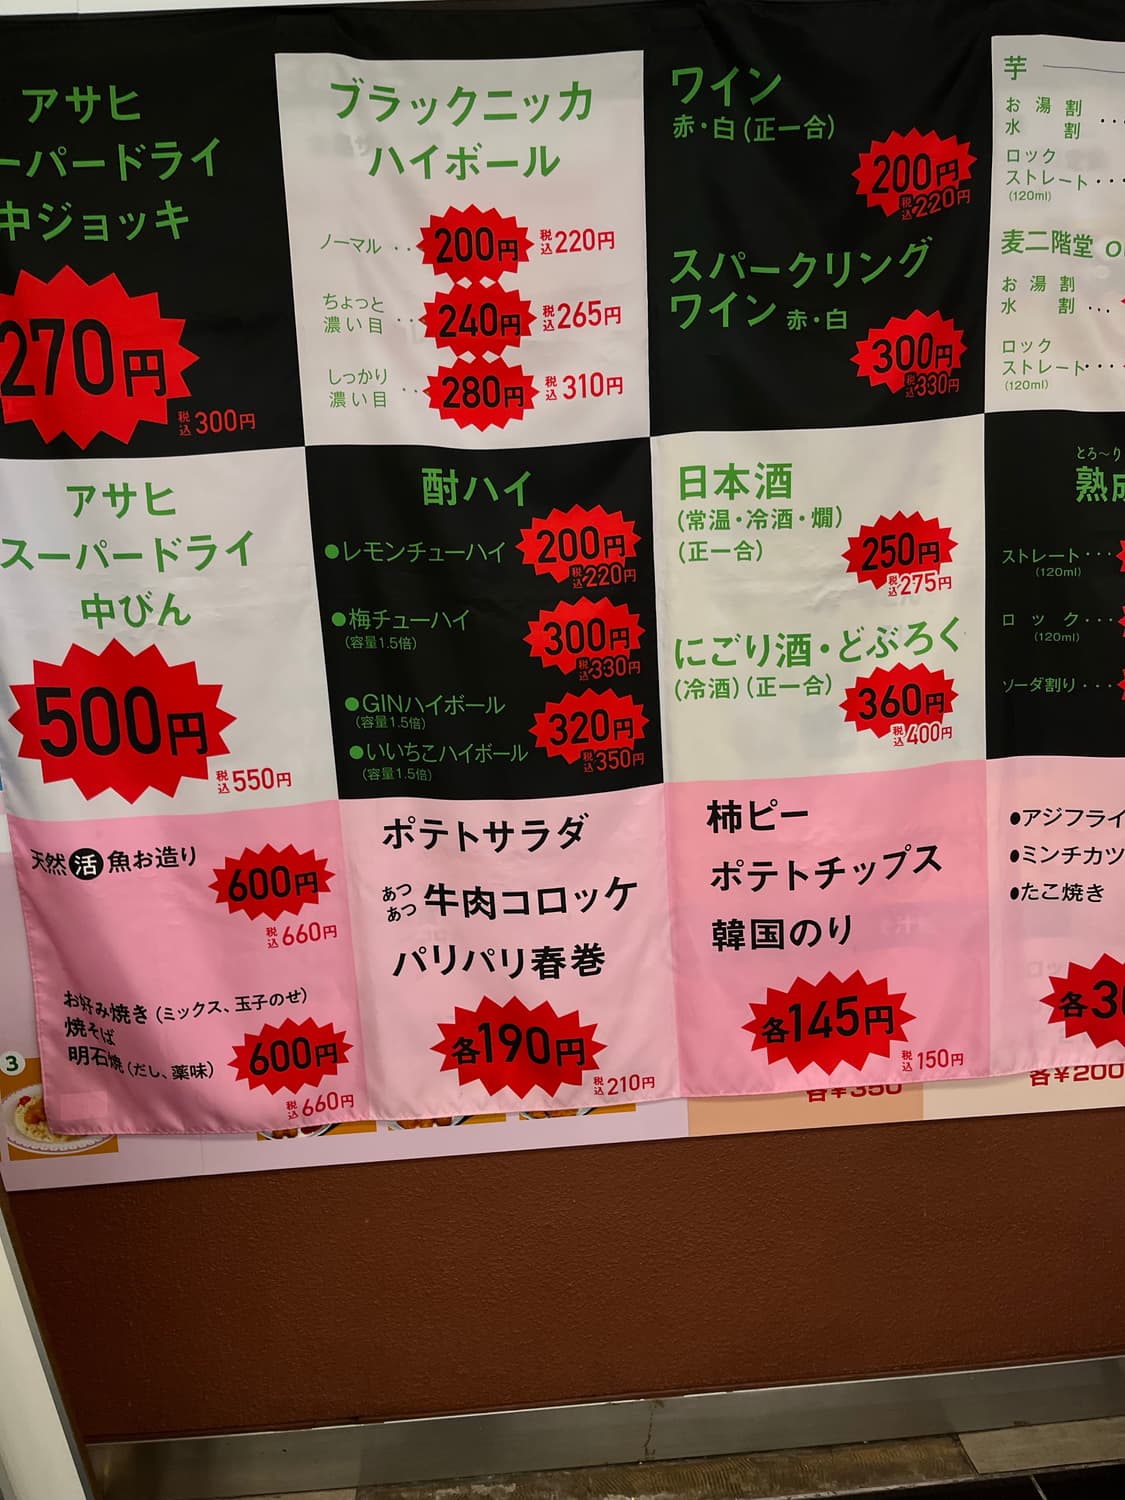 アサヒ
ーパードライ
中ジョッキ
270円
税込300円
ブラックニッカ
ハイボール
ノーマル ‥ 200円 税込220円
ちょっと
濃い目 ‥ 240円 税込265円
しっかり
濃い目 ‥ 280円 税込310円
ワイン
赤・白(正一合)
200円
税込220円
スパークリング
ワイン 赤・白
300円
税込330円
芋
お湯割
水割
ロック
ストレート
(120ml)
麦二階堂
お湯割
水割
ロック
ストレート
(120ml)
アサヒ
スーパードライ
中びん
500円
税込550円
酎ハイ
●レモンチューハイ 200円
税込220円
●梅チューハイ 300円
(容量1.5倍)
税込330円
●GINハイボール
(容量1.5倍)
320円
税込350円
●いいちこハイボール
(容量1.5倍)
日本酒
(常温・冷酒・燗)
(正一合)
250円
税込275円
にごり酒・どぶろく
(冷酒)(正一合) 360円
税込400円
とろ〜り
熟成
ストレート
(120ml)
ロック
(120ml)
ソーダ割り
天然活魚お造り 600円
税込660円
お好み焼き(ミックス、玉子のせ)
焼そば
明石焼(だし、薬味)
600円
税込660円
ポテトサラダ
あつあつ 牛肉コロッケ
パリパリ春巻
各190円
税込210円
柿ピー
ポテトチップス
韓国のり
各145円
税込150円
●アジフライ
●ミンチカツ
●たこ焼き
各30
3
各¥350
各¥200